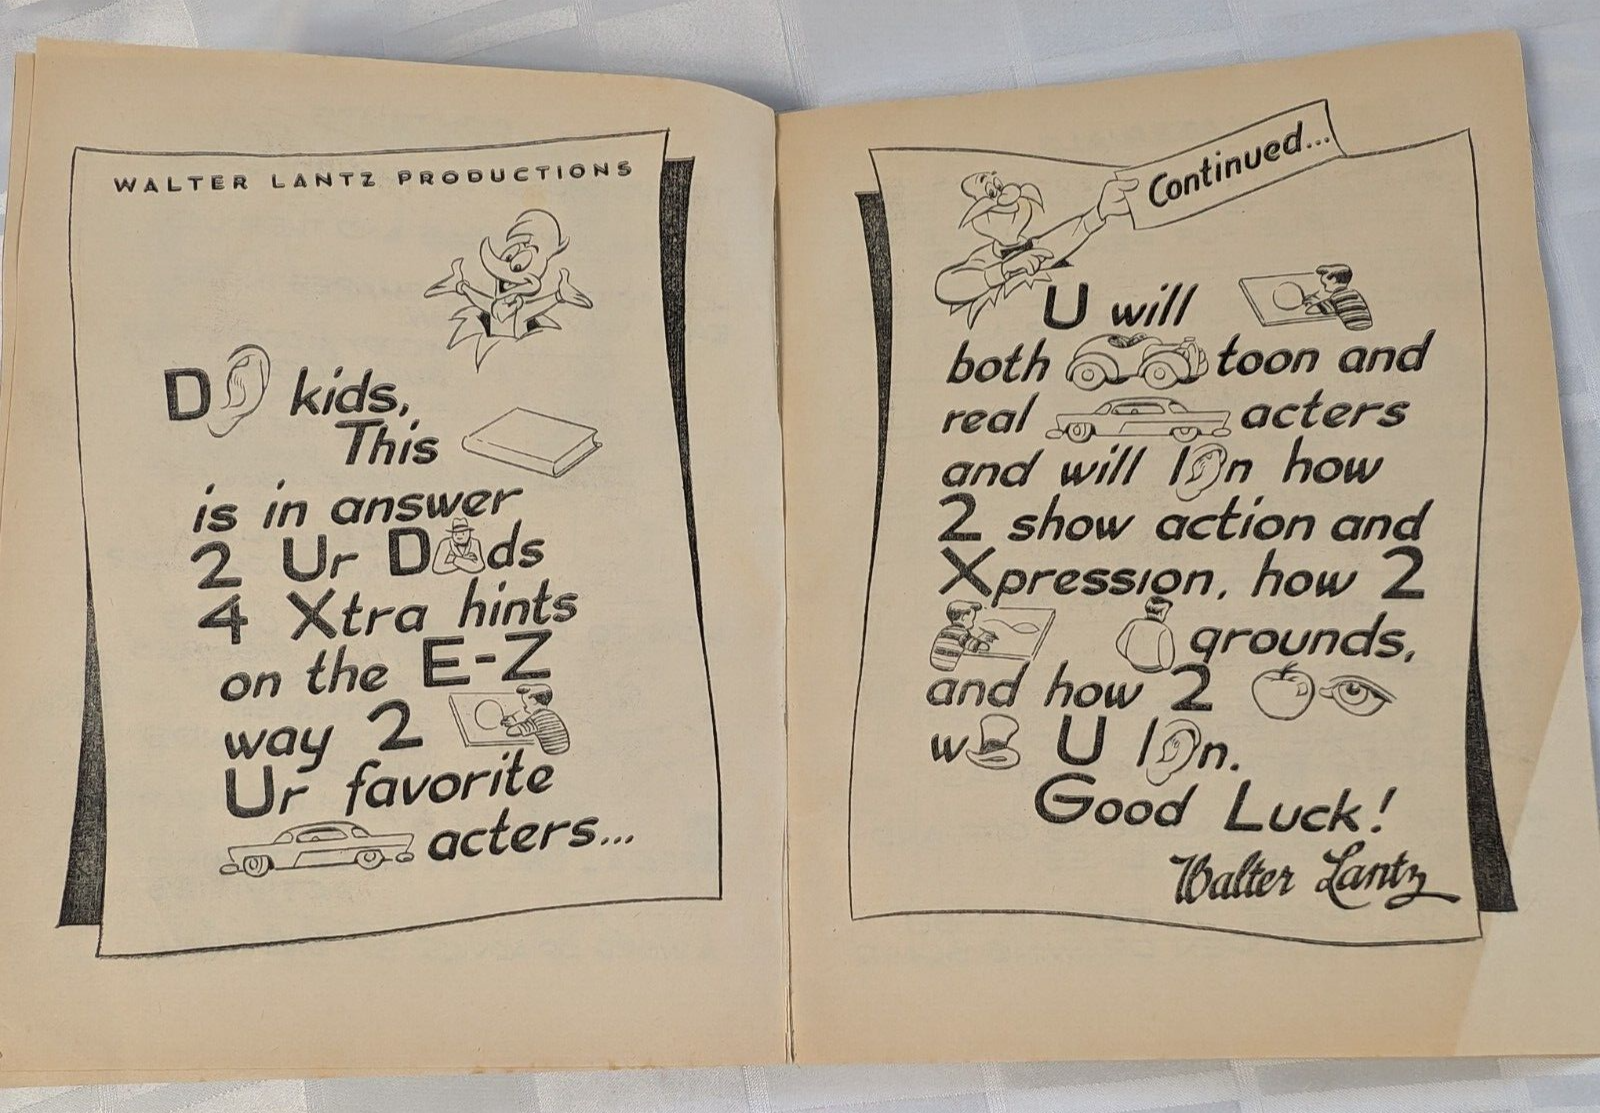 WALTER LANTZ PRODUCTIONS
D kids,
This
is in answer
2 Ur D ds
4 Xtra hints
on the E-Z
way 2
Ur favorite
acters...
Continued...
U will
both toon and
real acters
and will l n how
2 show action and
Xpression, how 2
grounds,
and how 2
w U l n.
Good Luck!
Walter Lantz